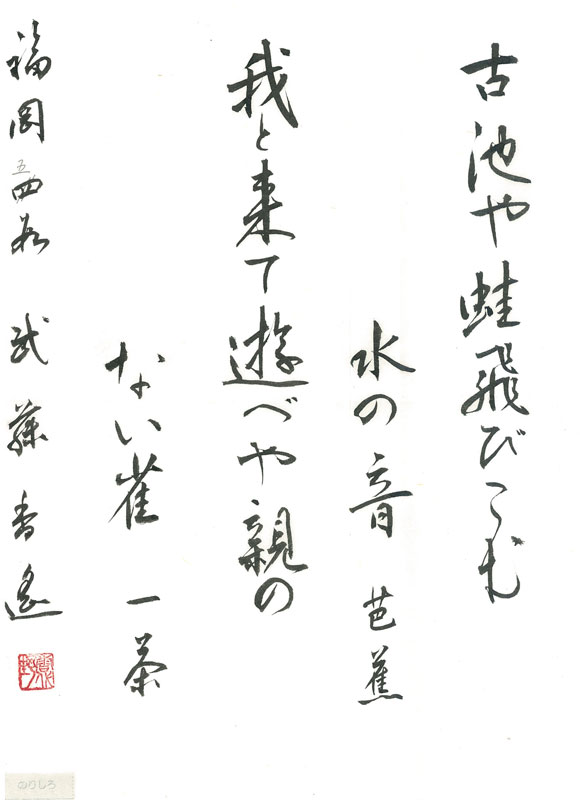 古池や蛙飛びこむ
水の音 芭蕉
我と来て遊べや親の
ない雀 一茶
福岡 五四
武藤香遙
のりしろ